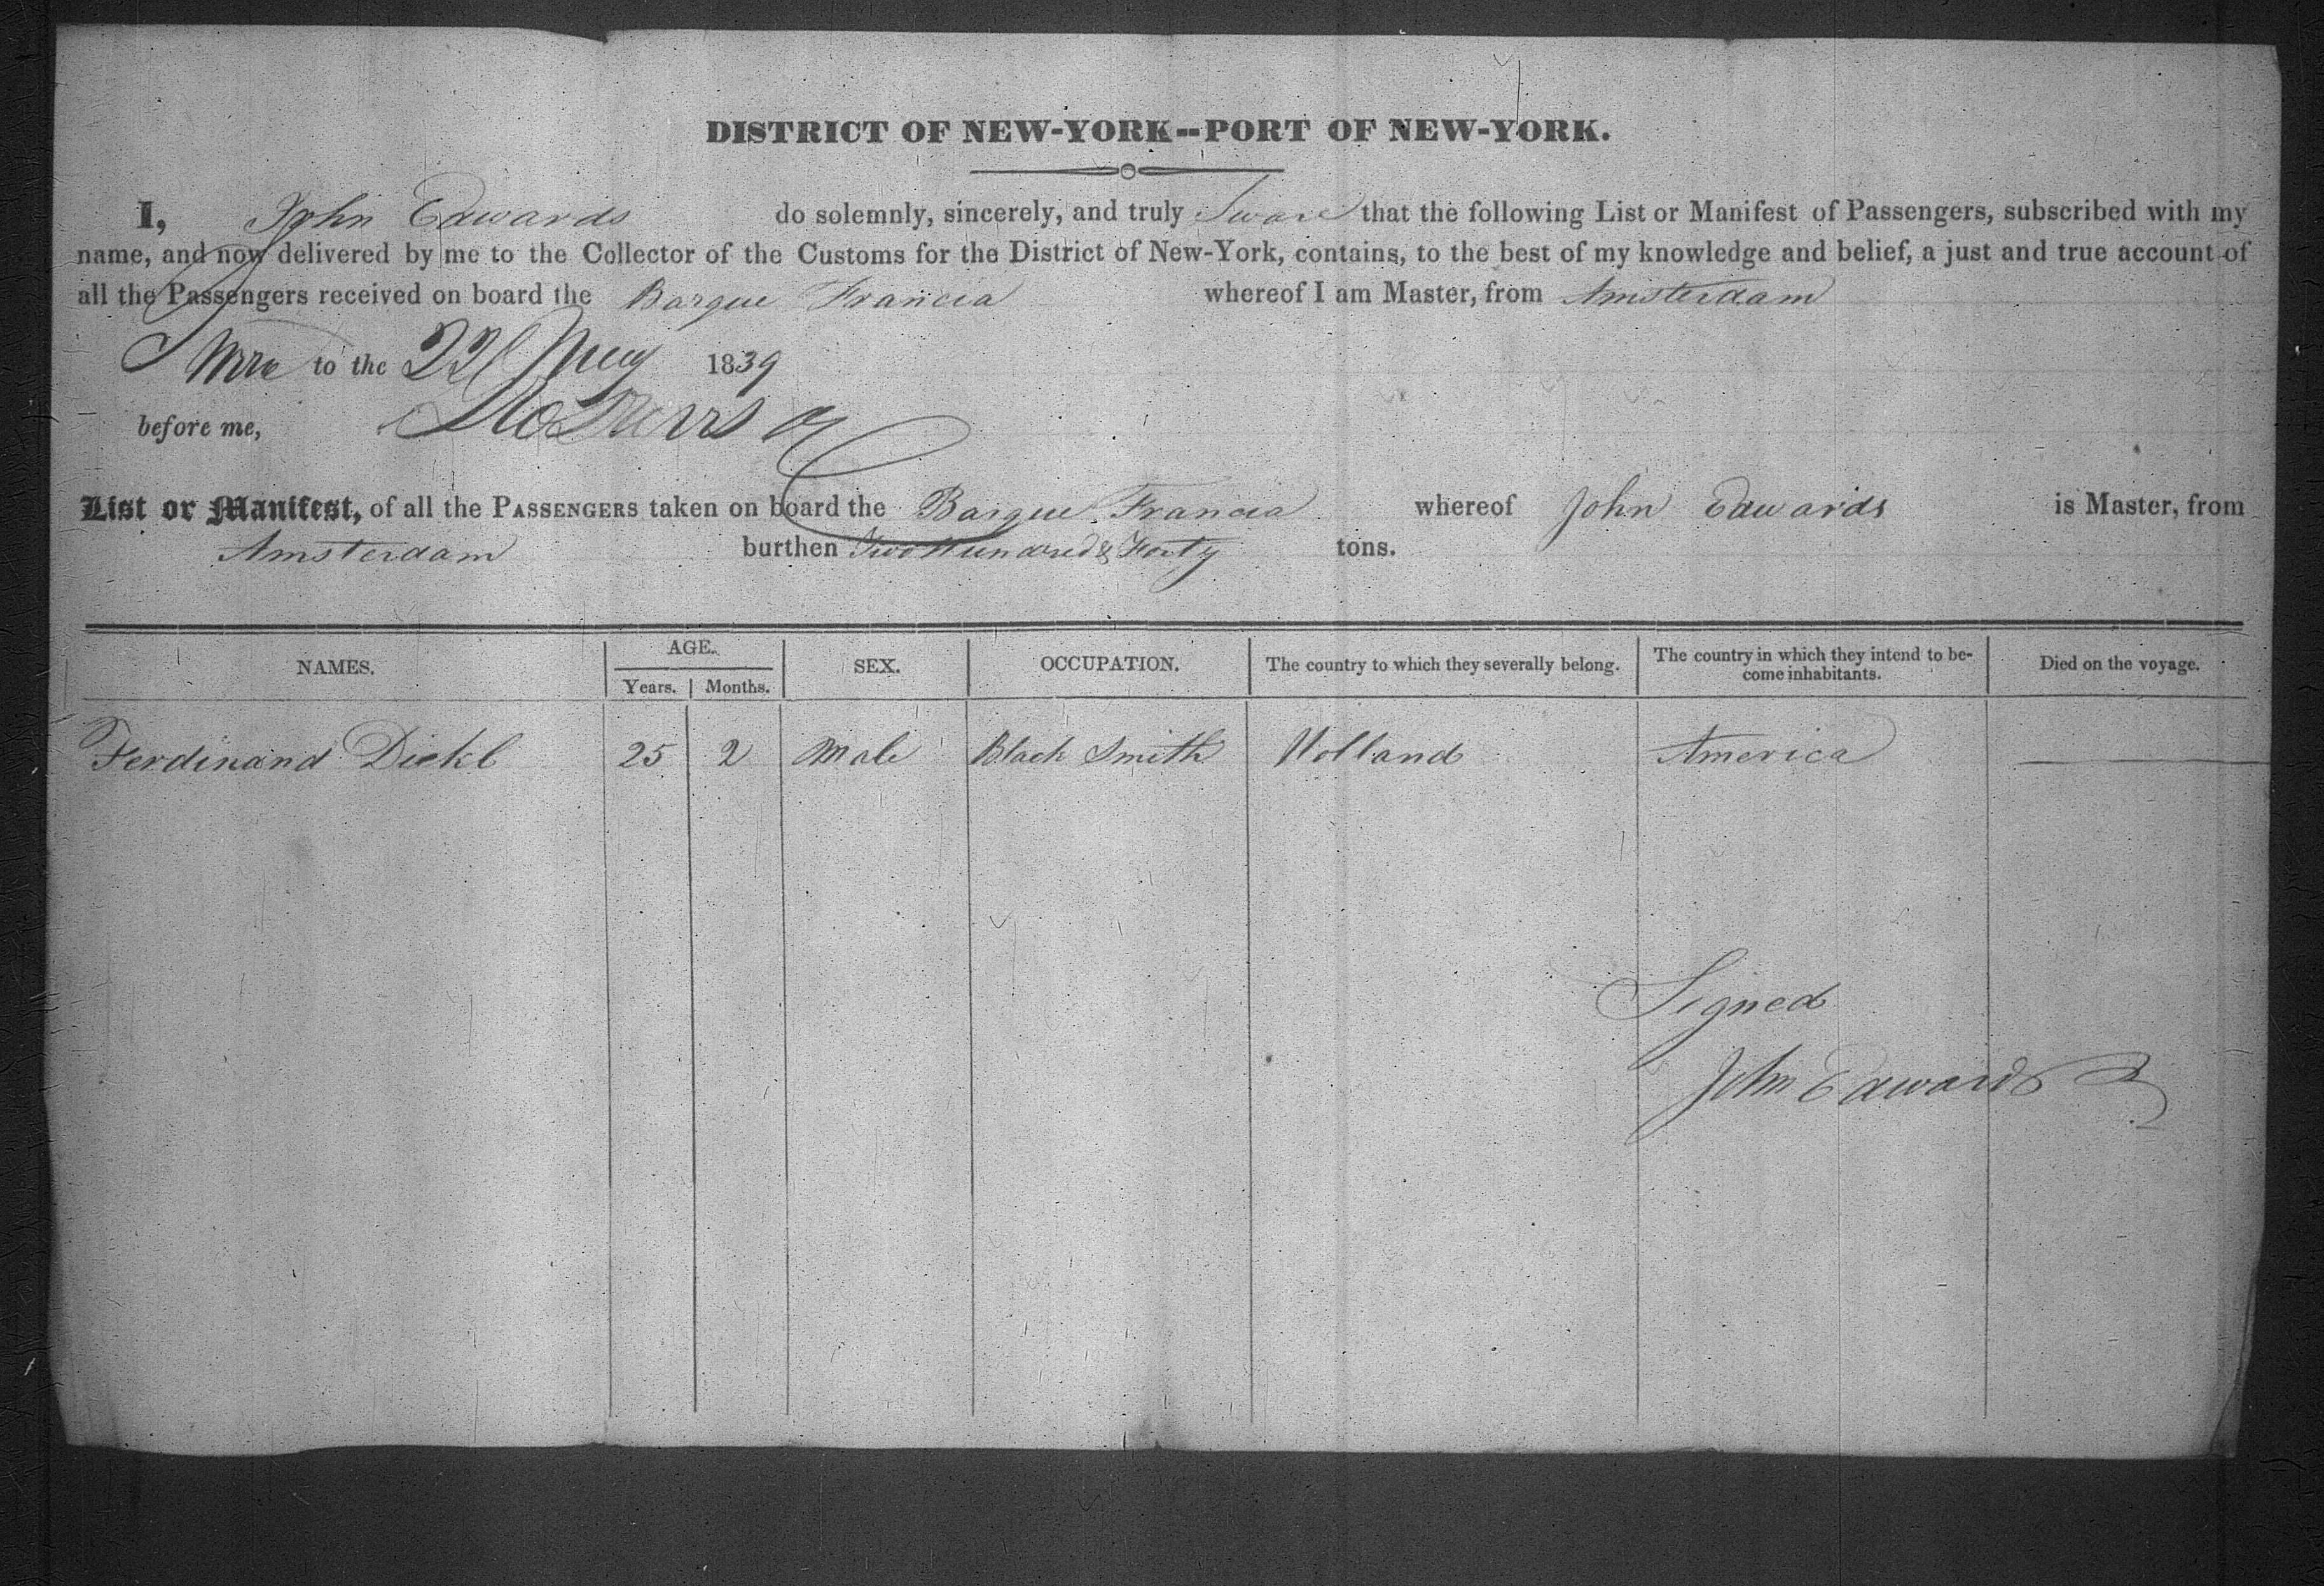 DISTRICT OF NEW-YORK--PORT OF NEW-YORK.
I, John Edwards do solemnly, sincerely, and truly Swear that the following List or Manifest of Passengers, subscribed with my
name, and now delivered by me to the Collector of the Customs for the District of New-York, contains, to the best of my knowledge and belief, a just and true account of
all the Passengers received on board the Barque Francia whereof I am Master, from Amsterdam
to the 22 May 1839
before me,
List or Manifest, of all the PASSENGERS taken on board the Barque Francia whereof John Edwards is Master, from
Amsterdam burthen Two Hundred & Forty tons.
NAMES. AGE. Years. Months. SEX. OCCUPATION. The country to which they severally belong. The country in which they intend to be-
come inhabitants. Died on the voyage.
Ferdinand Diekl 25 2 Male Black Smith Holland America
Signed
John Edwards